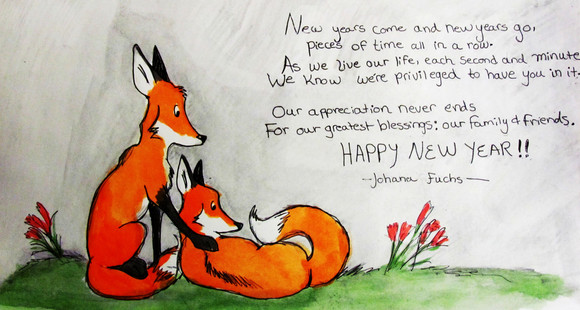 New years come and new years go,
pieces of time all in a row.
As we live our life, each second and minute
We know we're privileged to have you in it.
Our appreciation never ends
For our greatest blessings: our family & friends.
HAPPY NEW YEAR!!
-Johana Fuchs-